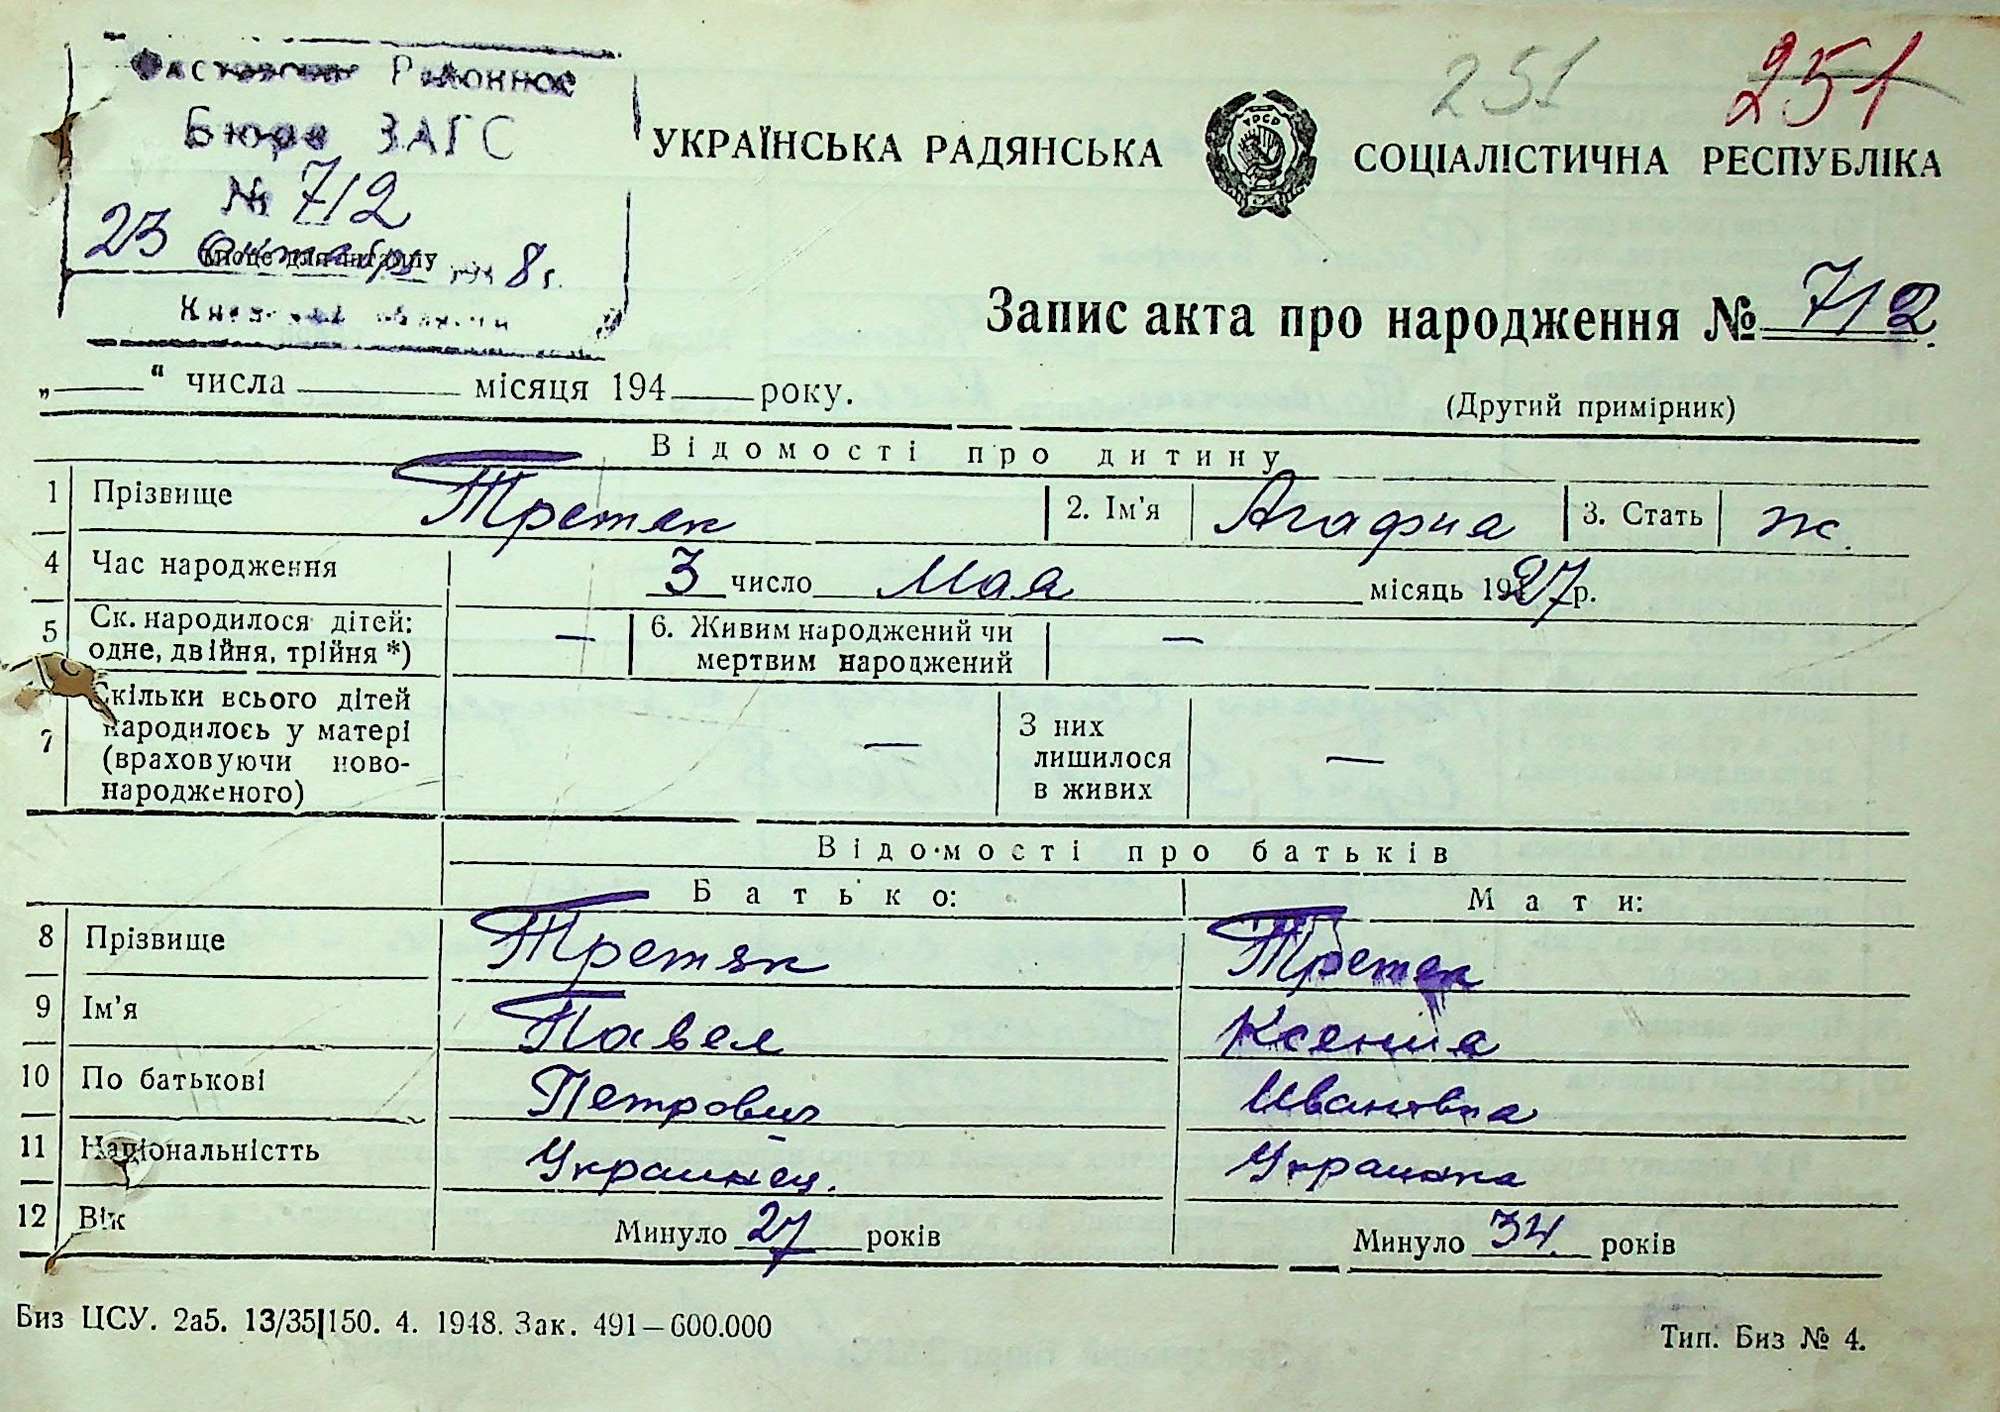 Фастовское Районное
Бюро ЗАГС
№ 712
23 октября 1948 г.
Місце для штампу
Киевской области
251 251
УКРАЇНСЬКА РАДЯНСЬКА СОЦІАЛІСТИЧНА РЕСПУБЛІКА
УРСР
Запис акта про народження № 712
„ “ числа місяця 194 року.
(Другий примірник)
Відомості про дитину
1 Прізвище Третяк 2. Ім'я Агафия 3. Стать ж.
4 Час народження 3 число Мая місяць 1927 р.
5 Ск. народилося дітей: одне, двійня, трійня *) — 6. Живим народжений чи мертвим народжений —
7 Скільки всього дітей народилось у матері (враховуючи новонародженого) — З них лишилося в живих —
Відомості про батьків
Батько: Мати:
8 Прізвище Третяк Третяк
9 Ім'я Павел Ксения
10 По батькові Петрович Ивановна
11 Національністть Украинец. Украинка
12 Вік Минуло 27 років Минуло 34 років
Биз ЦСУ. 2а5. 13/35|150. 4. 1948. Зак. 491—600.000
Тип. Биз № 4.